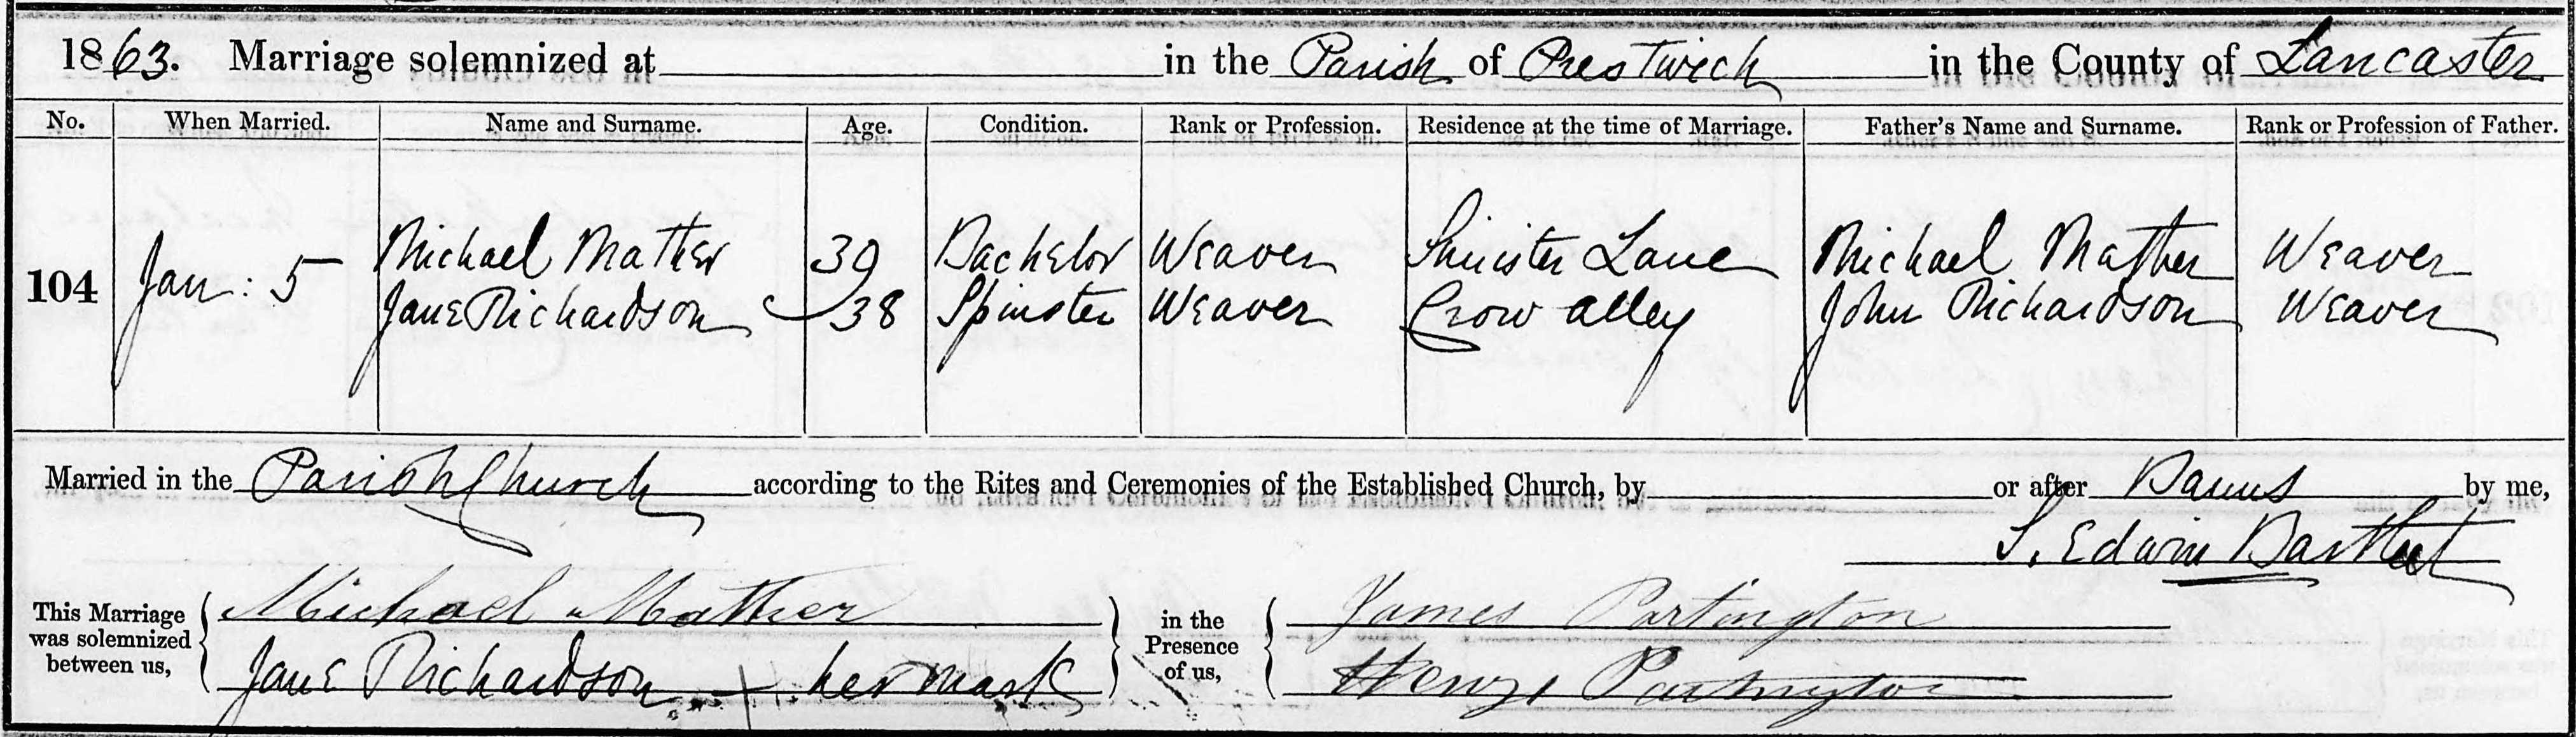 1863. Marriage solemnized at in the Parish of Prestwich in the County of Lancaster
No. When Married. Name and Surname. Age. Condition. Rank or Profession. Residence at the time of Marriage. Father's Name and Surname. Rank or Profession of Father.
Michael Mather 39 Bachelor Weaver Lane Michael Mather Weaver
104 Jan: 5 Jane Richardson 38 Spinster Weaver Crow alley John Richardson Weaver
Married in the Parish Church according to the Rites and Ceremonies of the Established Church, by or after Banns by me,
S. Edwin Bartleet
This Marriage was solemnized between us, Michael Mather in the Presence of us, James Partington
Jane Richardson + her mark Henry Partington